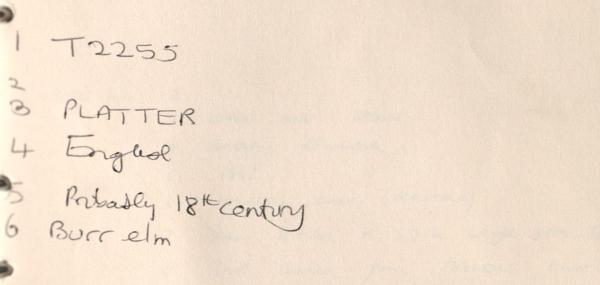 1 T2255
2
3 PLATTER
4 English
5 Probably 18th century
6 Burr elm